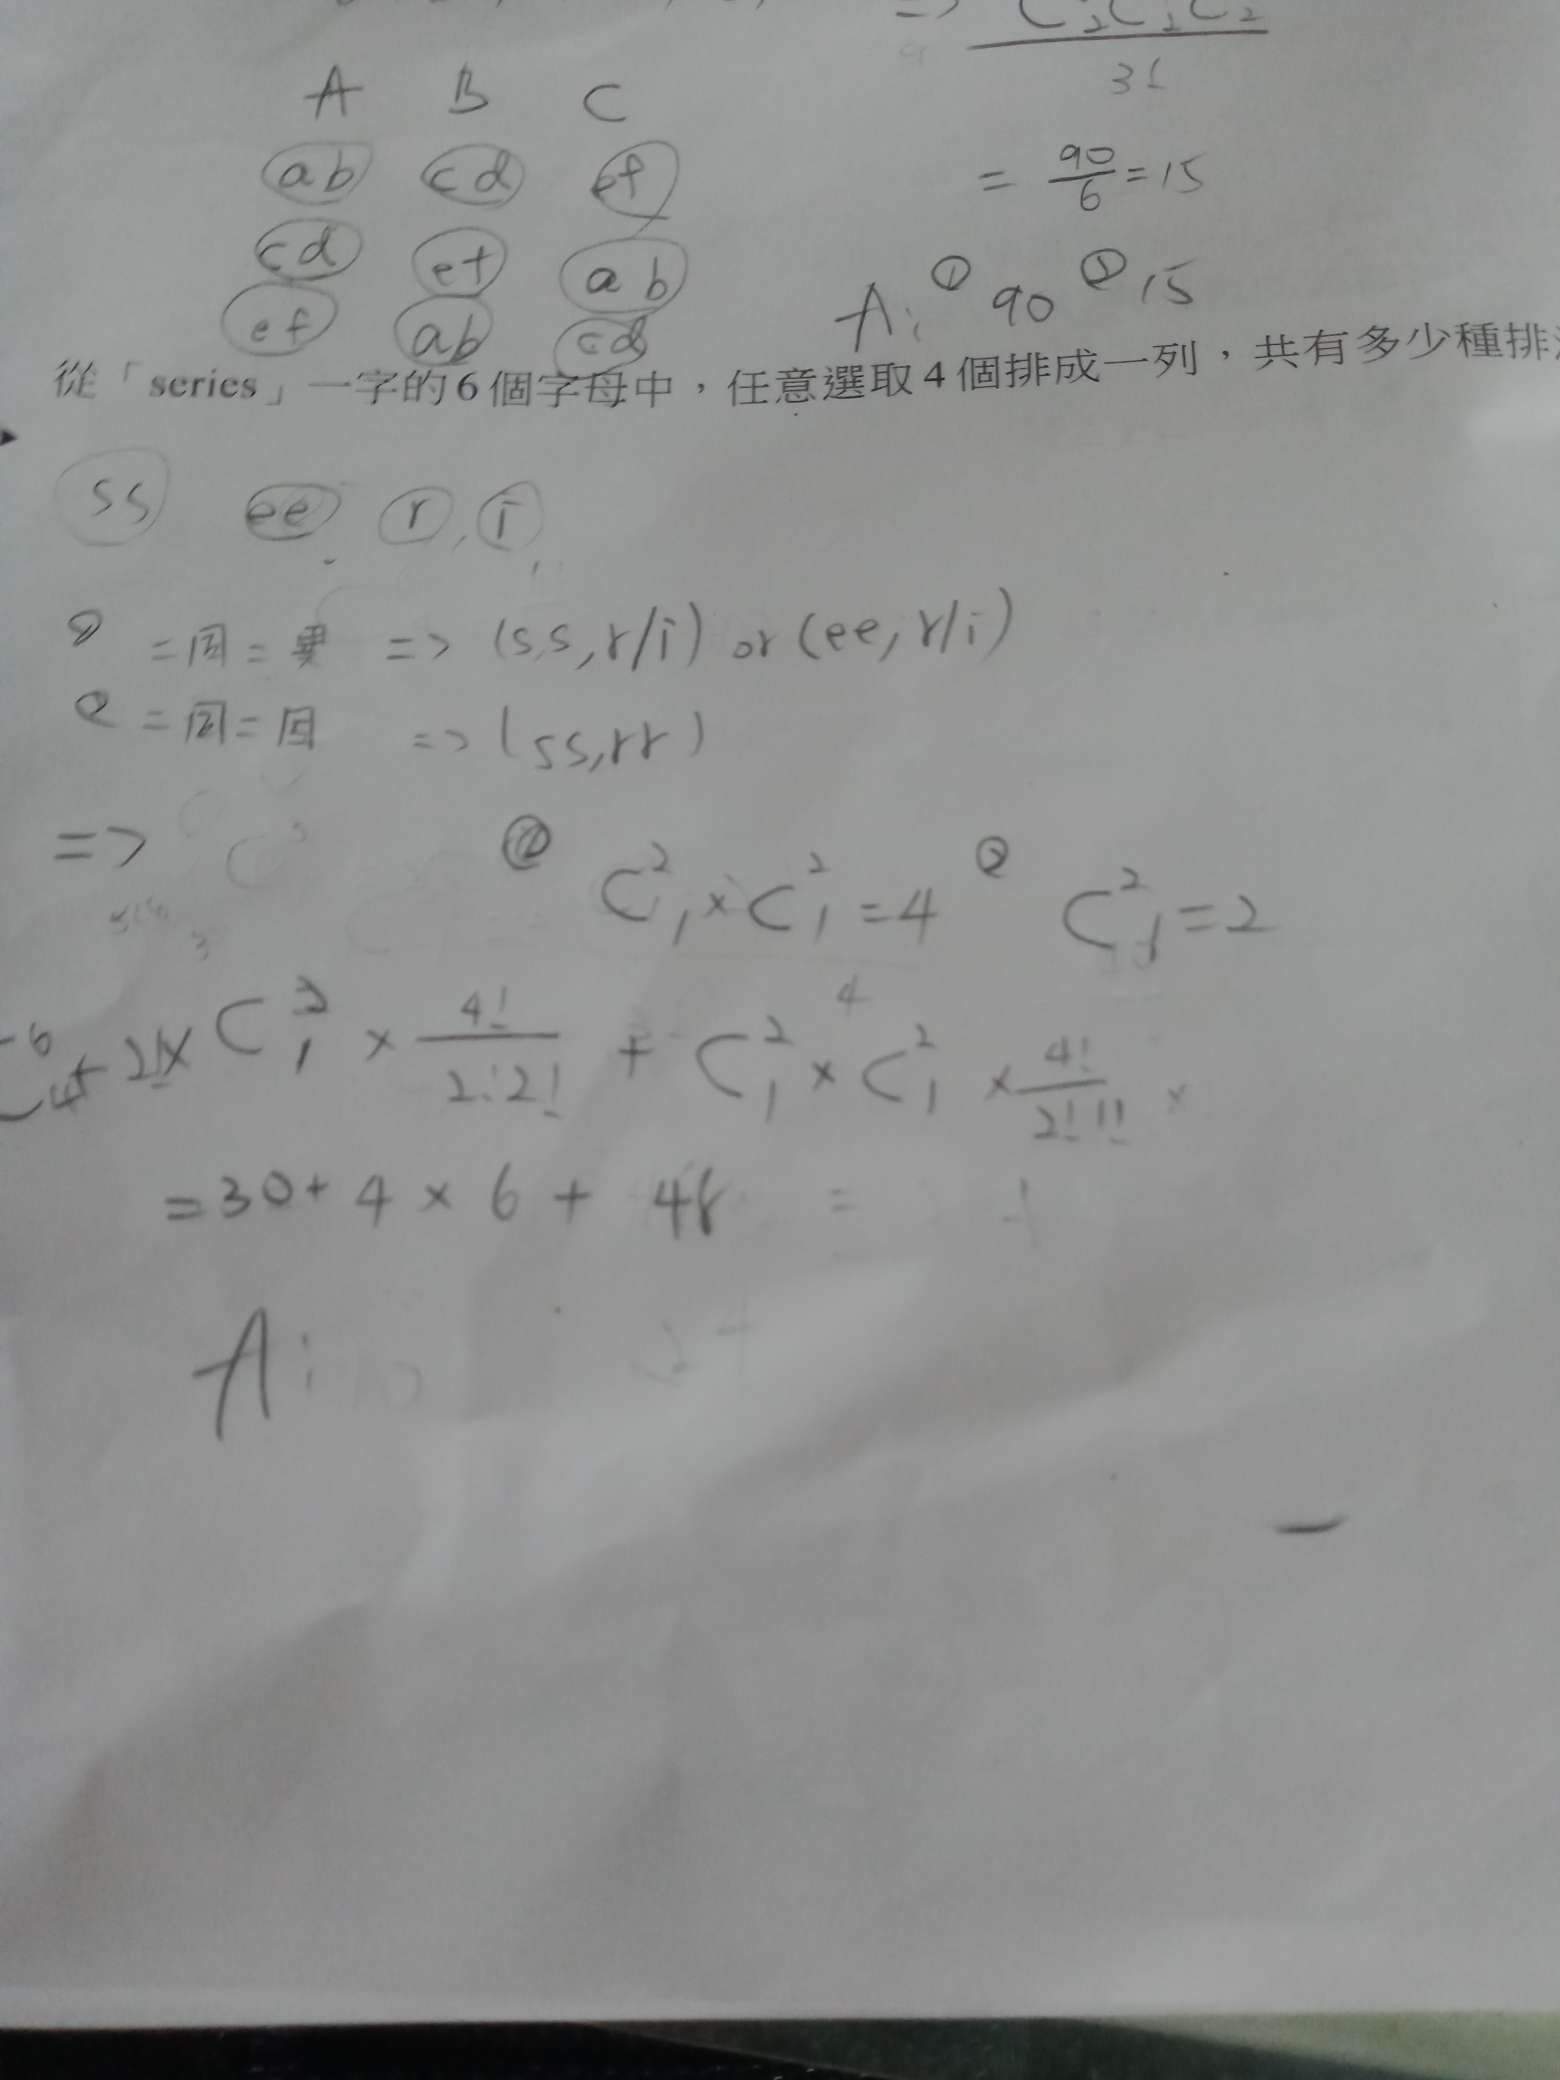 => C₂C₂C₂
3!
A B C
ab cd ef
= 90/6 = 15
cd ef ab
A: ① 90 ② 15
ef ab cd
從「series」一字的6個字母中，任意選取4個排成一列，共有多少種排
ss ee r, i
① 二同二異 => (s,s, r/i) or (ee, r/i)
② 二同二同 => (ss, rr)
=>
① C²₁ × C²₁ = 4 ② C²₁ = 2
× C²₁ × 4!/2!2! + C²₁ × C²₁ × 4!/2!1! ×
4
= 30 + 4 × 6 + 48 =
A: